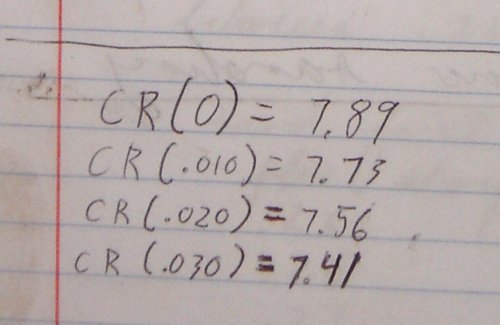 CR(0) = 7.89
CR(.010) = 7.73
CR(.020) = 7.56
CR(.030) = 7.41